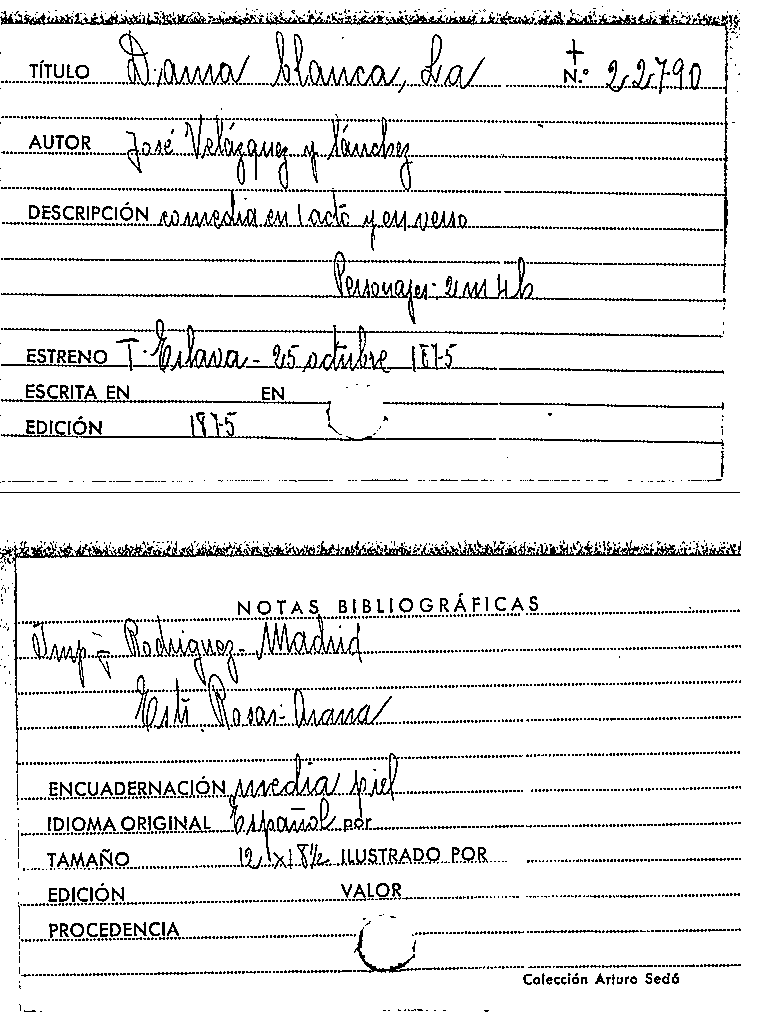 TÍTULO Dama blanca, La + N.º 22790
AUTOR José Velázquez y Sánchez
DESCRIPCIÓN comedia en 1 acto y en verso
Personajes- 2m 4h
ESTRENO T. Eslava - 25 octubre 1875
ESCRITA EN EN
EDICIÓN 1875
NOTAS BIBLIOGRÁFICAS
Imp. Rodriguez- Madrid
Rosas- Arana
ENCUADERNACIÓN media piel
IDIOMA ORIGINAL Español por
TAMAÑO 12 1x18½ ILUSTRADO POR
EDICIÓN VALOR
PROCEDENCIA
Colección Arturo Sedó